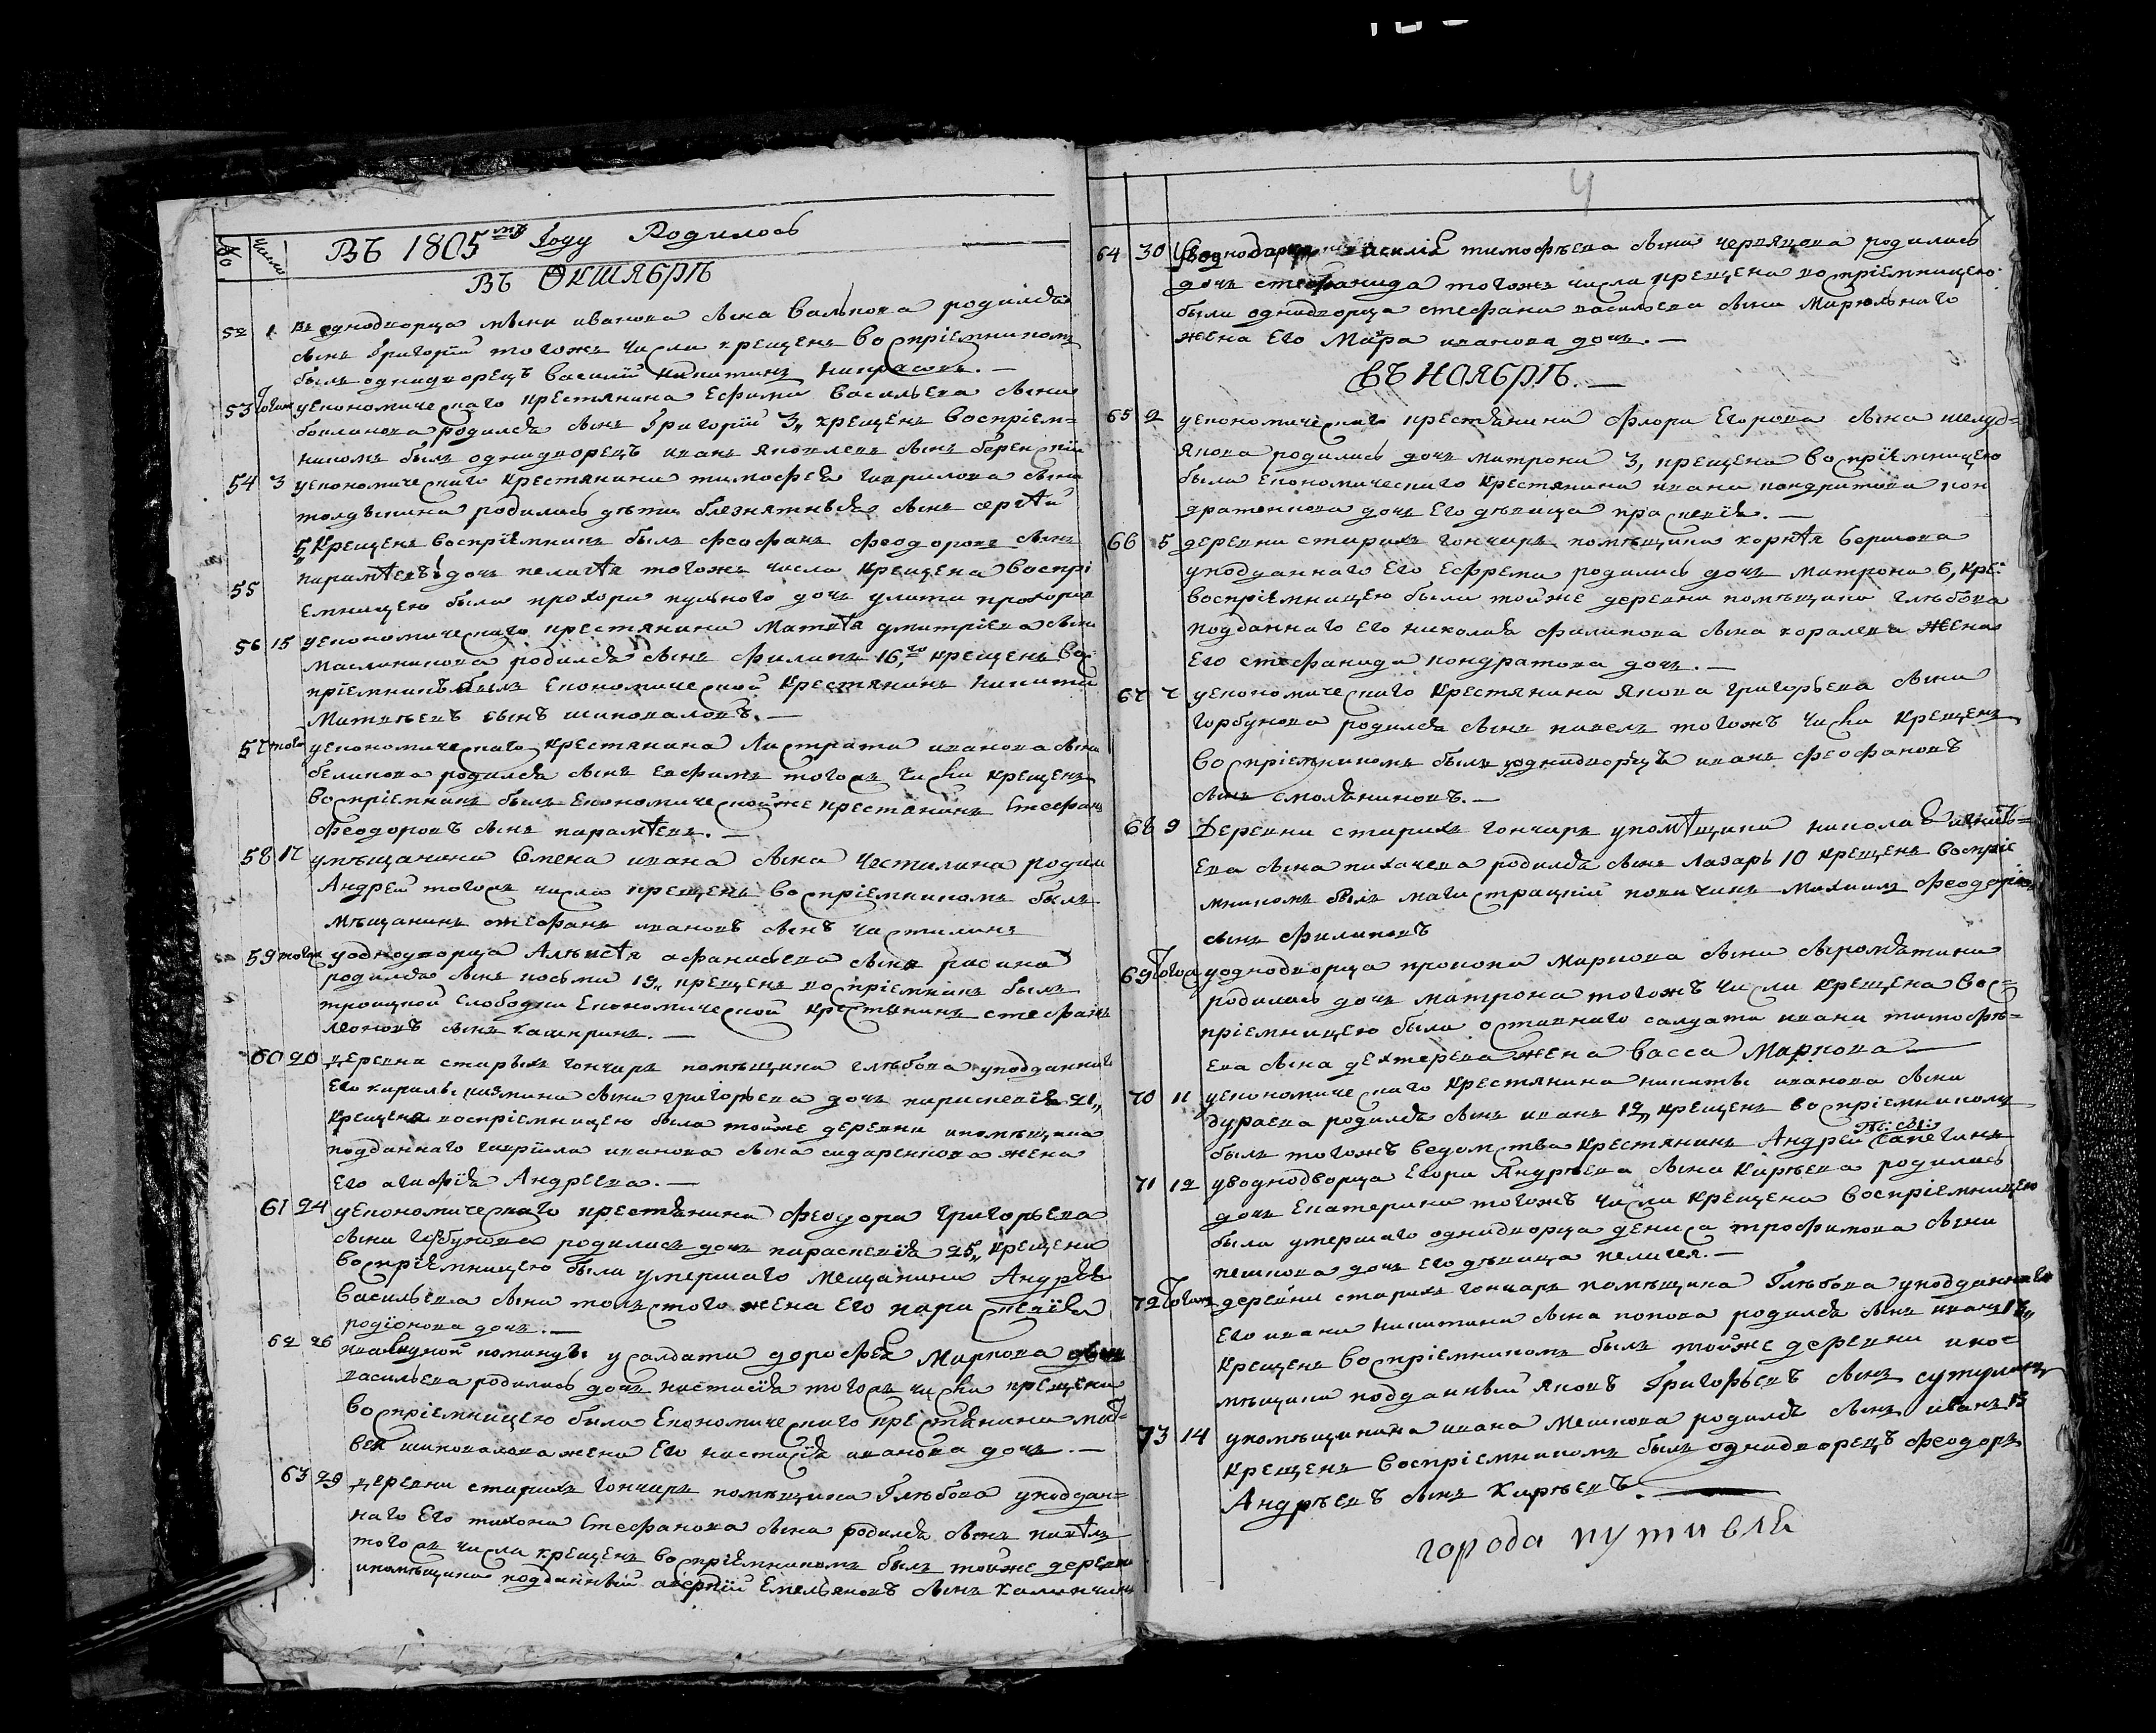 № Число Въ 1805мъ Году Родилось
Въ Октябрѣ
52 1 однодворца ивана иванова сына родился
сынъ Григорїй тогожъ числа крещенъ воспрїемникомъ
былъ однодворецъ василїй никитинъ
53 Тогожъ уекономическаго крестянина Ефима Василъева сына
родился сынъ Григорїй 3, крещенъ воспрїем-
никомъ былъ однодворецъ иванъ яковлевъ сынъ
54 3 уекономическаго крестянина тимофея гаврилова сына
родились дѣти близнятныя сынъ сергѣй
5, Крещенъ воспрїемникъ былъ феофанъ феодоровъ сынъ
55 дочь пелагѣя тогожъ числа крещена воспрї
емницею была прохора дочь улита прохорова
56 15 уекономическаго крестянина Матвѣя дмитрїева сына
Масленикова родился сынъ филипъ 16,го крещенъ вос-
прїемникъ былъ економической крестянинъ никита
Матвѣевъ сынъ шиповаловъ.—
57 того уекономическаго крестянина Листрата иванова сына
беликова родился сынъ евфимъ тогожъ числа крещенъ
воспрїемникъ былъ економической же крестянинъ Стефанъ
Феодоровъ сынъ .—
58 17 умѣщанина Семена ивана сына Честилина родил
Андрей тогожъ числа крещенъ воспрїемникомъ былъ
мѣщанинъ стефанъ ивановъ сынъ частилинъ
59 тогож уоднодворца Алѣксѣя афанасьева сына
родился сынъ косьма 19, крещенъ воспрїемникъ былъ
троицкой слободки економической крестянинъ стефанъ
леоновъ сынъ кашкринъ.—
60 20 деревни старыхъ гончаръ помѣщика глѣбова уподданнаго
Его кирилы козмина сына григорьева дочь параскевїя 21,
крещена воспрїемницею была тойже деревни ипомѣщика
подданнаго гаврїила иванова сына сидаренкова жена
Его агафїя Андреева.—
61 24 уекономическаго крестянина феодора григорьева
сына горбунова родилась дочь параскевїя 25, крещена
воспрїемницею была умершаго мещанина Андрѣя
Васильева сына толстого жена Его параскевїя
родїонова дочь.—
62 26 инвалидной команды усалдата дорофея Маркова
василъева родилась дочь настасїя тогожъ числа крещена
воспрїемницею была економическаго крестянина мат-
вея шиповалова жена Его настасїя иванова дочь.—
63 29 деревни старыхъ гончаръ помѣщика Глѣбова уподдан-
наго Его тихона Стефанова сына родился сынъ павѣлъ
тогожъ числа крещенъ воспрїемникомъ былъ тойже деревни
ипомѣщика подданный аверкїй Емельяновъ сынъ
64 30 уоднодворца василя тимофѣева сына червякова родилась
дочь стефанида тогожъ числа крещена воспрїемницею
была однодворца стефана васильева сына
жена Его Мавра иванова дочь.—
Въ Ноябрѣ.—
65 2 уекономическаго крестянина флора Егорова сына шелуд-
якова родилась дочь матрона 3, крещена воспрїемницею
была економическаго крестянина ивана кондратова кон
дратенкова дочь Его дѣвица праскевїя.—
66 5 деревни старыхъ гончаръ помѣщика корнѣя
уподданнаго Его Ефрема родилась дочь матрона 6, кре:
воспрїемницею была тойже деревни помѣщика глѣбова
подданнаго Его николая филипова сына королева жена
Его стефанида кондратова дочь.—
67 7 уекономическаго крестянина якова григорьева сына
горбунова родился сынъ павелъ тогожъ числа крещенъ
воспрїемникомъ былъ однодворецъ иванъ феофановъ
сынъ смоляниновъ.—
68 9 Деревни старыхъ гончаръ упомѣщика николая игнатѣ-
ева сына лихачева родился сынъ лазарь 10 крещенъ воспрїе
мникомъ былъ михаилъ феодоровъ
сынъ филиповъ
69 Тогож уоднодворца прокопа маркова сына сыромятина
родилась дочь матрона тогожъ числа крещена вос-
прїемницею была отставнаго салдата ивана тимофѣ-
ева сына дехтерева жена васса Маркова—
70 11 уекономическаго крестянина никиты иванова сына
дураева родился сынъ иванъ 12, крещенъ воспрїемникомъ
былъ тогожъ ведомства крестянинъ Андрей сапегинъ
71 12 уводнодворца Егора Андрѣева сына кирѣева родилась
дочь Екатерина тогожъ числа крещена воспрїемницею
была умершаго однодворца дениса трофимова сына
пешкова дочь его дѣвица пелагея.—
72 Тогожъ деревни старыхъ гончаръ помѣщика Глѣбова уподданнаго
Его ивана никитина сына попова родился сынъ иванъ 13,
крещенъ воспрїемникомъ былъ тойже деревни ипо-
мѣщика подданный яковъ Григорьевъ сынъ
73 14 упомѣщика ивана мешкова родился сынъ иванъ 15
крещенъ воспрїемникомъ былъ однодворецъ феодоръ
Андрѣевъ сынъ кирѣевъ.
города путивля